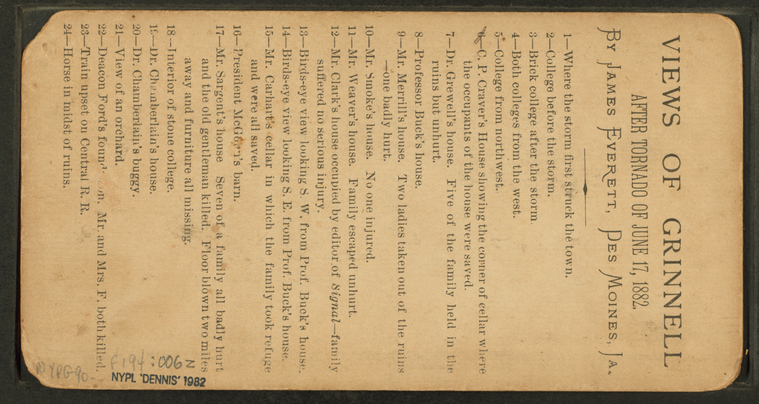 VIEWS OF GRINNELL
AFTER TORNADO OF JUNE 17, 1882.
BY JAMES EVERETT, DES MOINES, IA.
1—Where the storm first struck the town.
2—College before the storm.
3—Brick college after the storm.
4—Both colleges from the west.
5—College from northwest.
6—C. P. Craver's House showing the corner of cellar where
the occupants of the house were saved.
7—Dr. Grewell's house. Five of the family held in the
ruins but unhurt.
8—Professor Buck's house.
9—Mr. Merrill's house. Two ladies taken out of the ruins
—one badly hurt.
10—Mr. Smoke's house. No one injured.
11—Mr. Weaver's house. Family escaped unhurt.
12—Mr. Clark's house occupied by editor of Signal—family
suffered no serious injury.
13—Birds-eye view looking S W. from Prof. Buck's house.
14—Birds-eye view looking S. E. from Prof. Buck's house.
15—Mr. Carhart's cellar in which the family took refuge
and were all saved.
16—President barn.
17—Mr. Sargent's house Seven of a family all badly hurt
and the old gentleman killed. Floor blown two miles
away and furniture all missing.
18—Interior of stone college.
19—Dr. Chamberlain's house.
20—Dr. Chamberlain's buggy.
21—View of an orchard.
22—Deacon Ford's Mr. and Mrs. F. both killed.
23—Train upset on Central R. R.
24—Horse in midst of ruins.
F194:006Z
NYPL 'DENNIS' 1982